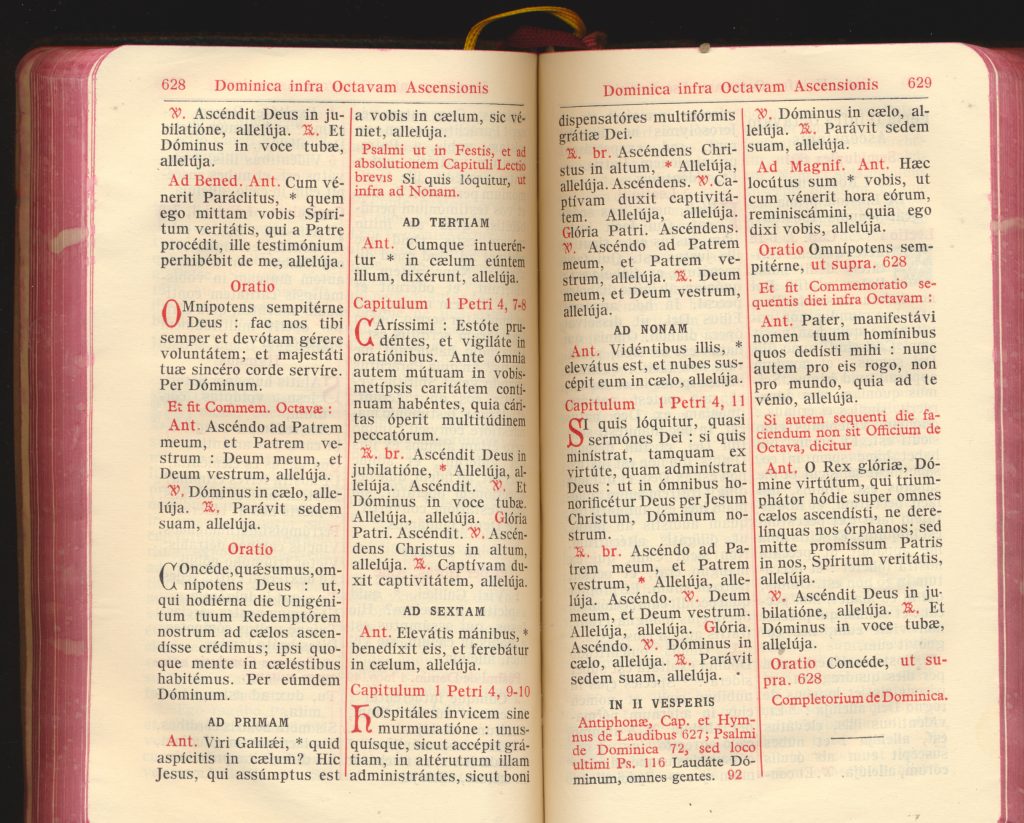 628 Dominica infra Octavam Ascensionis
℣. Ascéndit Deus in ju-
bilatióne, allelúja. ℟. Et
Dóminus in voce tubæ,
allelúja.
Ad Bened. Ant. Cum vé-
nerit Paráclitus, * quem
ego mittam vobis Spíri-
tum veritátis, qui a Patre
procédit, ille testimónium
perhibébit de me, allelúja.
Oratio
OMnípotens sempitérne
Deus : fac nos tibi
semper et devótam gérere
voluntátem; et majestáti
tuæ sincéro corde servíre.
Per Dóminum.
Et fit Commem. Octavæ :
Ant. Ascéndo ad Patrem
meum, et Patrem ve-
strum : Deum meum, et
Deum vestrum, allelúja.
℣. Dóminus in cælo, alle-
lúja. ℟. Parávit sedem
suam, allelúja.
Oratio
COncéde, quǽsumus, om-
nípotens Deus : ut,
qui hodiérna die Unigéni-
tum tuum Redemptórem
nostrum ad cælos ascen-
dísse crédimus; ipsi quo-
que mente in cæléstibus
habitémus. Per eúmdem
Dóminum.
AD PRIMAM
Ant. Viri Galilǽi, * quid
aspícitis in cælum? Hic
Jesus, qui assúmptus est
a vobis in cælum, sic vé-
niet, allelúja.
Psalmi ut in Festis, et ad
absolutionem Capituli Lectio
brevis Si quis lóquitur, ut
infra ad Nonam.
AD TERTIAM
Ant. Cumque intuerén-
tur * in cælum eúntem
illum, dixérunt, allelúja.
Capitulum 1 Petri 4, 7-8
CAríssimi : Estóte pru-
déntes, et vigiláte in
oratiónibus. Ante ómnia
autem mútuam in vobis-
metípsis caritátem contí-
nuam habéntes, quia cári-
tas óperit multitúdinem
peccatórum.
℟. br. Ascéndit Deus in
jubilatióne, * Allelúja, al-
lelúja. Ascéndit. ℣. Et
Dóminus in voce tubæ.
Allelúja, allelúja. Glória
Patri. Ascéndit. ℣. Ascén-
dens Christus in altum,
allelúja. ℟. Captívam du-
xit captivitátem, allelúja.
AD SEXTAM
Ant. Elevátis mánibus, *
benedíxit eis, et ferebátur
in cælum, allelúja.
Capitulum 1 Petri 4, 9-10
HOspitáles ínvicem sine
murmuratióne : unus-
quísque, sicut accépit grá-
tiam, in altérutrum illam
administrántes, sicut boni
Dominica infra Octavam Ascensionis 629
dispensatóres multifórmis
grátiæ Dei.
℟. br. Ascéndens Chri-
stus in altum, * Allelúja,
allelúja. Ascéndens. ℣. Ca-
ptívam duxit captivitá-
tem. Allelúja, allelúja.
Glória Patri. Ascéndens.
℣. Ascéndo ad Patrem
meum, et Patrem ve-
strum, allelúja. ℟. Deum
meum, et Deum vestrum,
allelúja.
AD NONAM
Ant. Vidéntibus illis, *
elevátus est, et nubes sus-
cépit eum in cælo, allelúja.
Capitulum 1 Petri 4, 11
SI quis lóquitur, quasi
sermónes Dei : si quis
minístrat, tamquam ex
virtúte, quam admínístrat
Deus : ut in ómnibus ho-
norificétur Deus per Jesum
Christum, Dóminum no-
strum.
℟. br. Ascéndo ad Pa-
trem meum, et Patrem
vestrum, * Allelúja, alle-
lúja. Ascéndo. ℣. Deum
meum, et Deum vestrum.
Allelúja, allelúja. Glória.
Ascéndo. ℣. Dóminus in
cælo, allelúja. ℟. Parávit
sedem suam, allelúja.
IN II VESPERIS
Antiphonæ, Cap. et Hym-
nus de Laudibus 627; Psalmi
de Dominica 72, sed loco
ultimi Ps. 116 Laudáte Dó-
minum, omnes gentes. 92
℣. Dóminus in cælo, al-
lelúja. ℟. Parávit sedem
suam, allelúja.
Ad Magnif. Ant. Hæc
locútus sum * vobis, ut
cum vénerit hora eórum,
reminiscámini, quia ego
dixi vobis, allelúja.
Oratio Omnípotens sem-
pitérne, ut supra. 628
Et fit Commemoratio se-
quentis diei infra Octavam :
Ant. Pater, manifestávi
nomen tuum homínibus
quos dedísti mihi : nunc
autem pro eis rogo, non
pro mundo, quia ad te
vénio, allelúja.
Si autem sequenti die fa-
ciendum non sit Officium de
Octava, dicitur
Ant. O Rex glóriæ, Dó-
mine virtútum, qui trium-
phátor hódie super omnes
cælos ascendísti, ne dere-
línquas nos órphanos; sed
mitte promíssum Patris
in nos, Spíritum veritátis,
allelúja.
℣. Ascéndit Deus in ju-
bilatióne, allelúja. ℟. Et
Dóminus in voce tubæ,
allelúja.
Oratio Concéde, ut su-
pra. 628
Completorium de Dominica.